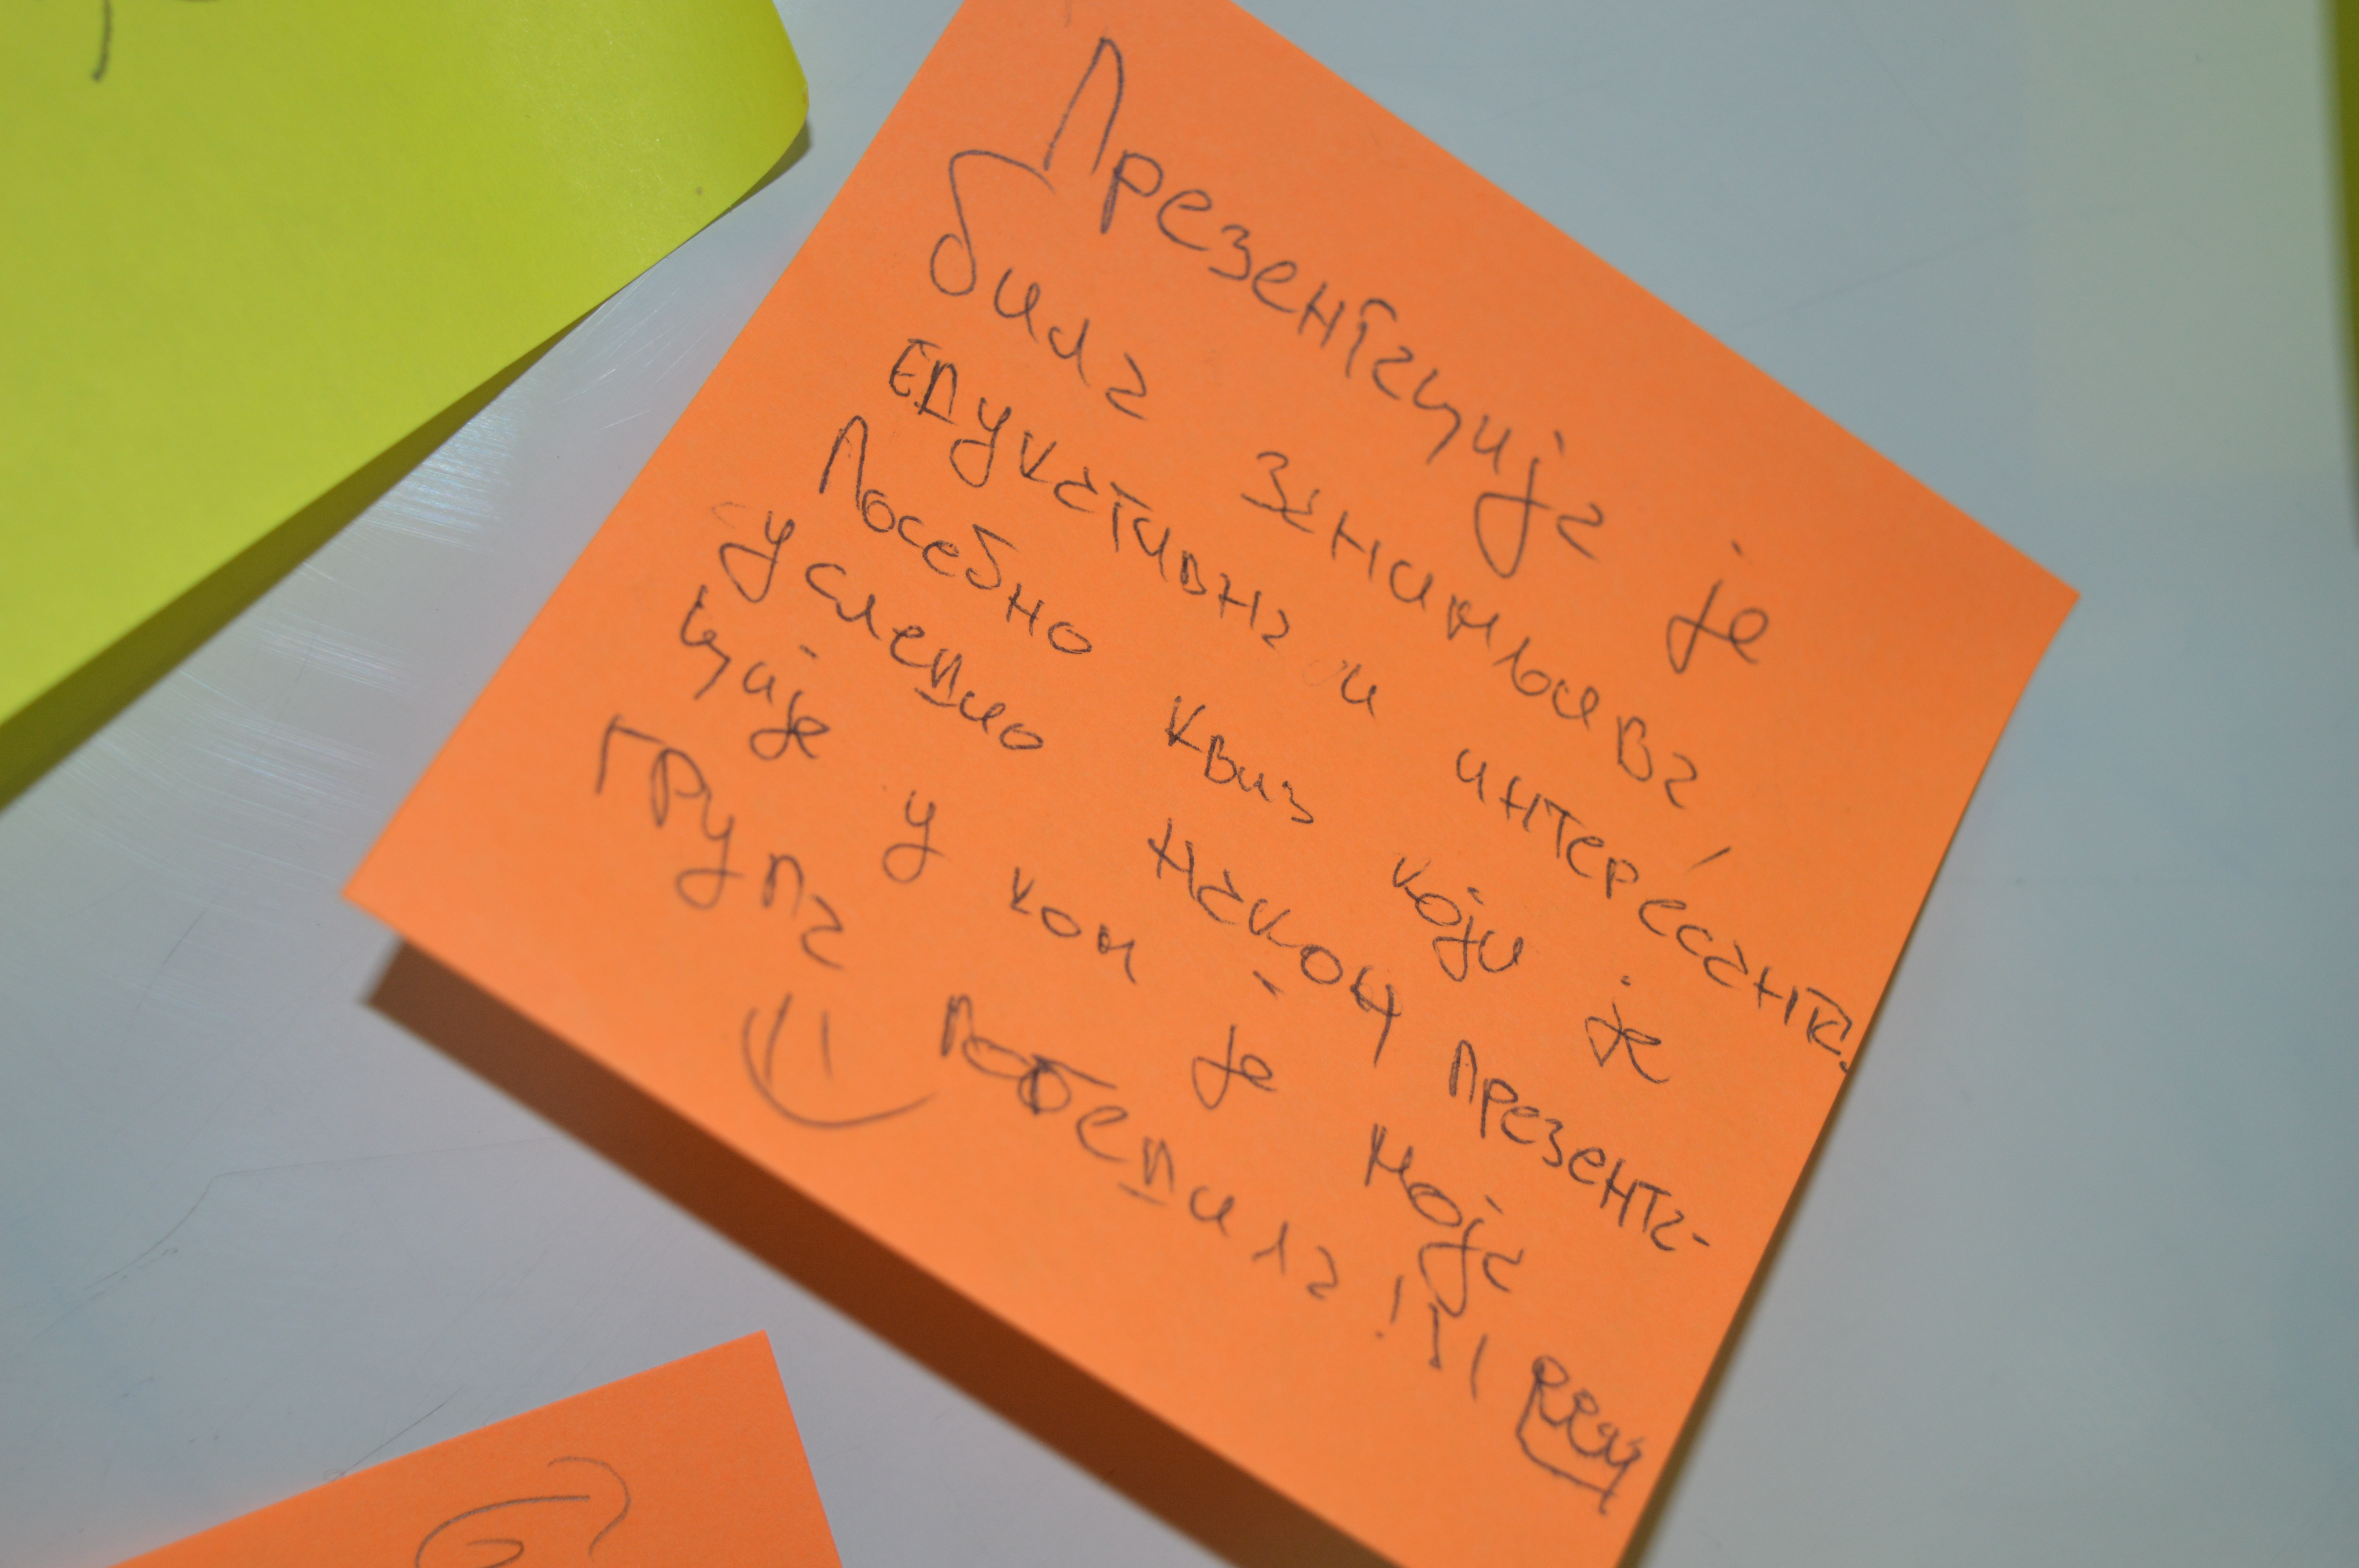 Презентација је
била занимљива,
едукативна и интересантна.
Посебно квиз који је
уследио након презента-
ције у ком је моја
група победила!